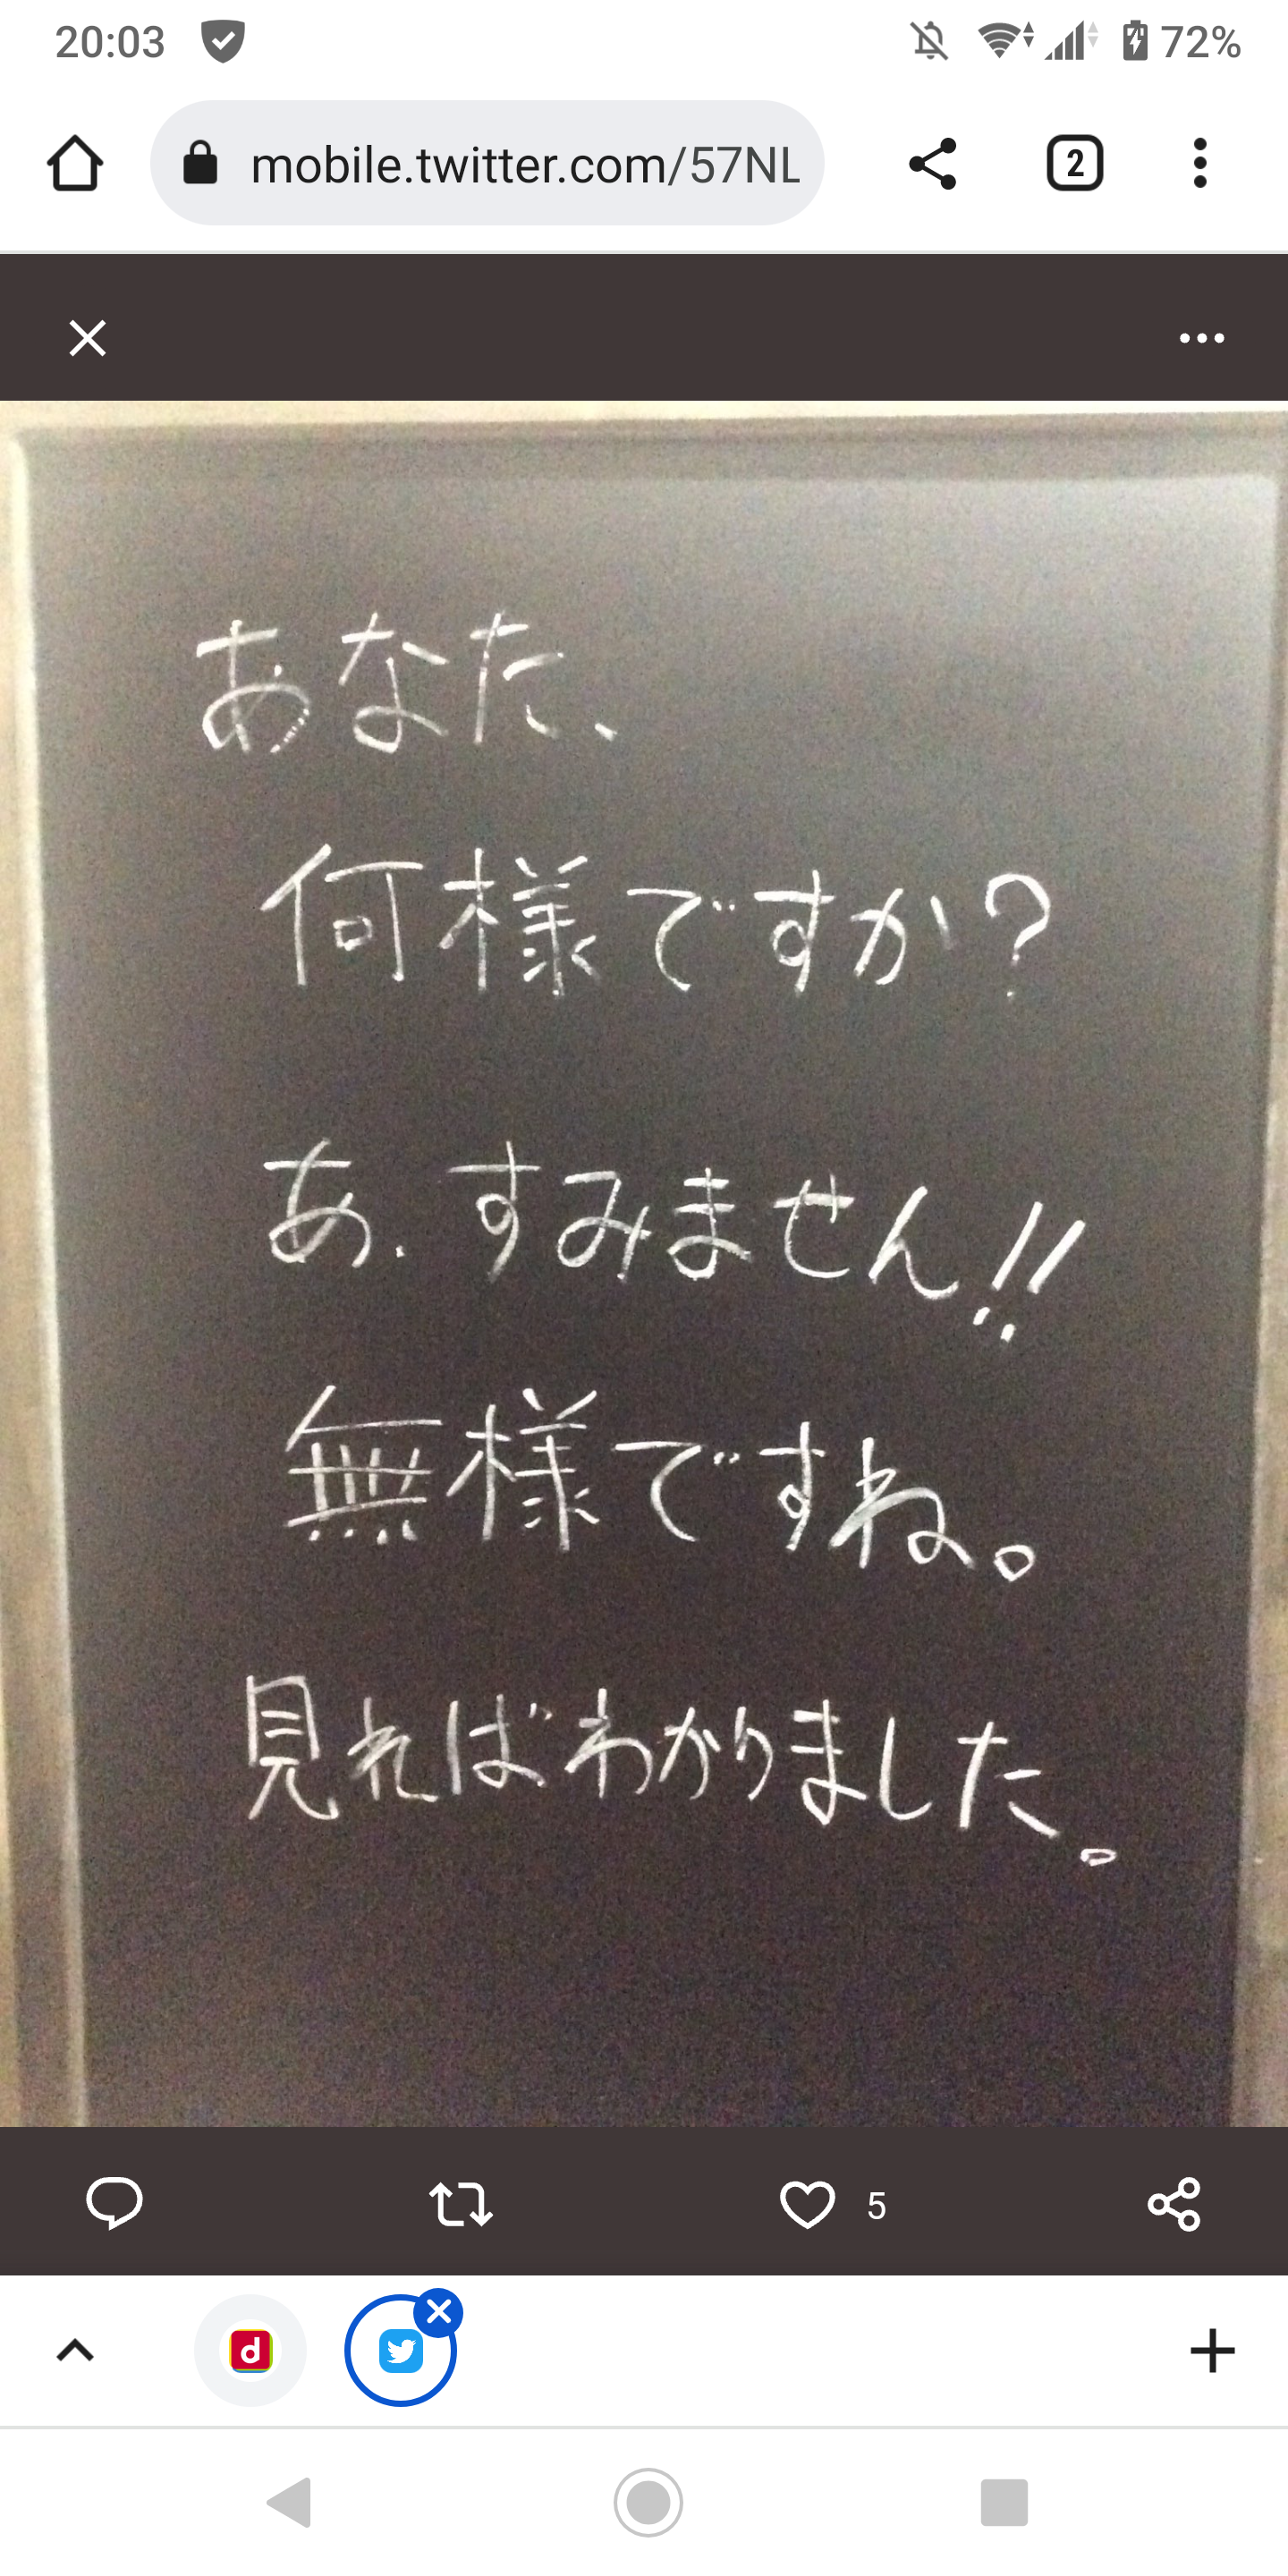 20:03
72%
mobile.twitter.com/57NL
2
あなた、
何様ですか?
あ.すみません!!
無様ですね。
見ればわかりました。
5
d